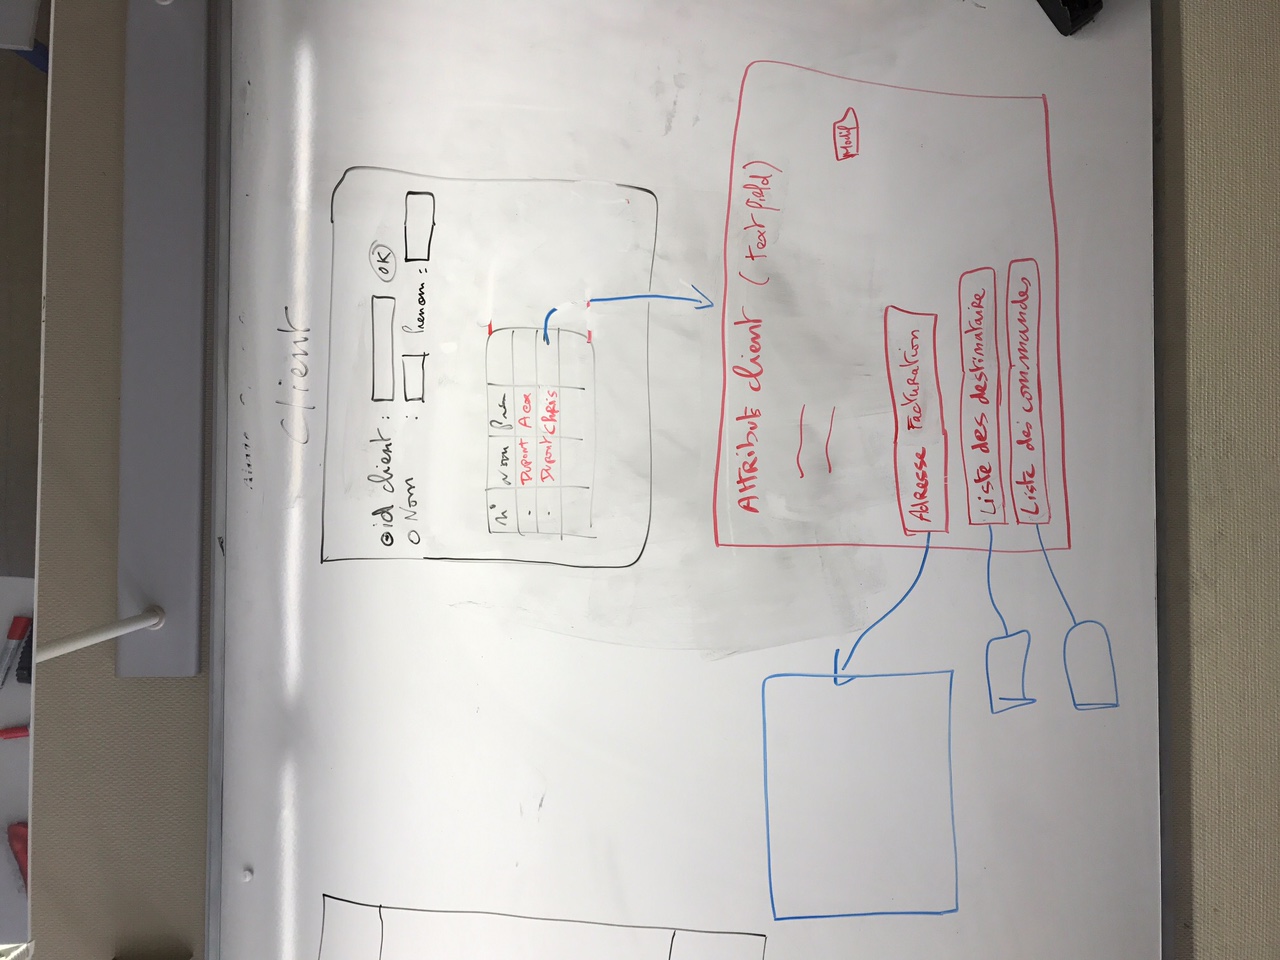 Client
id client : OK
Nom : Prenom :
N° Nom
- Dupont Alex
- Dupont Chris
Attribut client (text field)
Modif
Adresse Facturation
Liste des destinataire
Liste des commandes